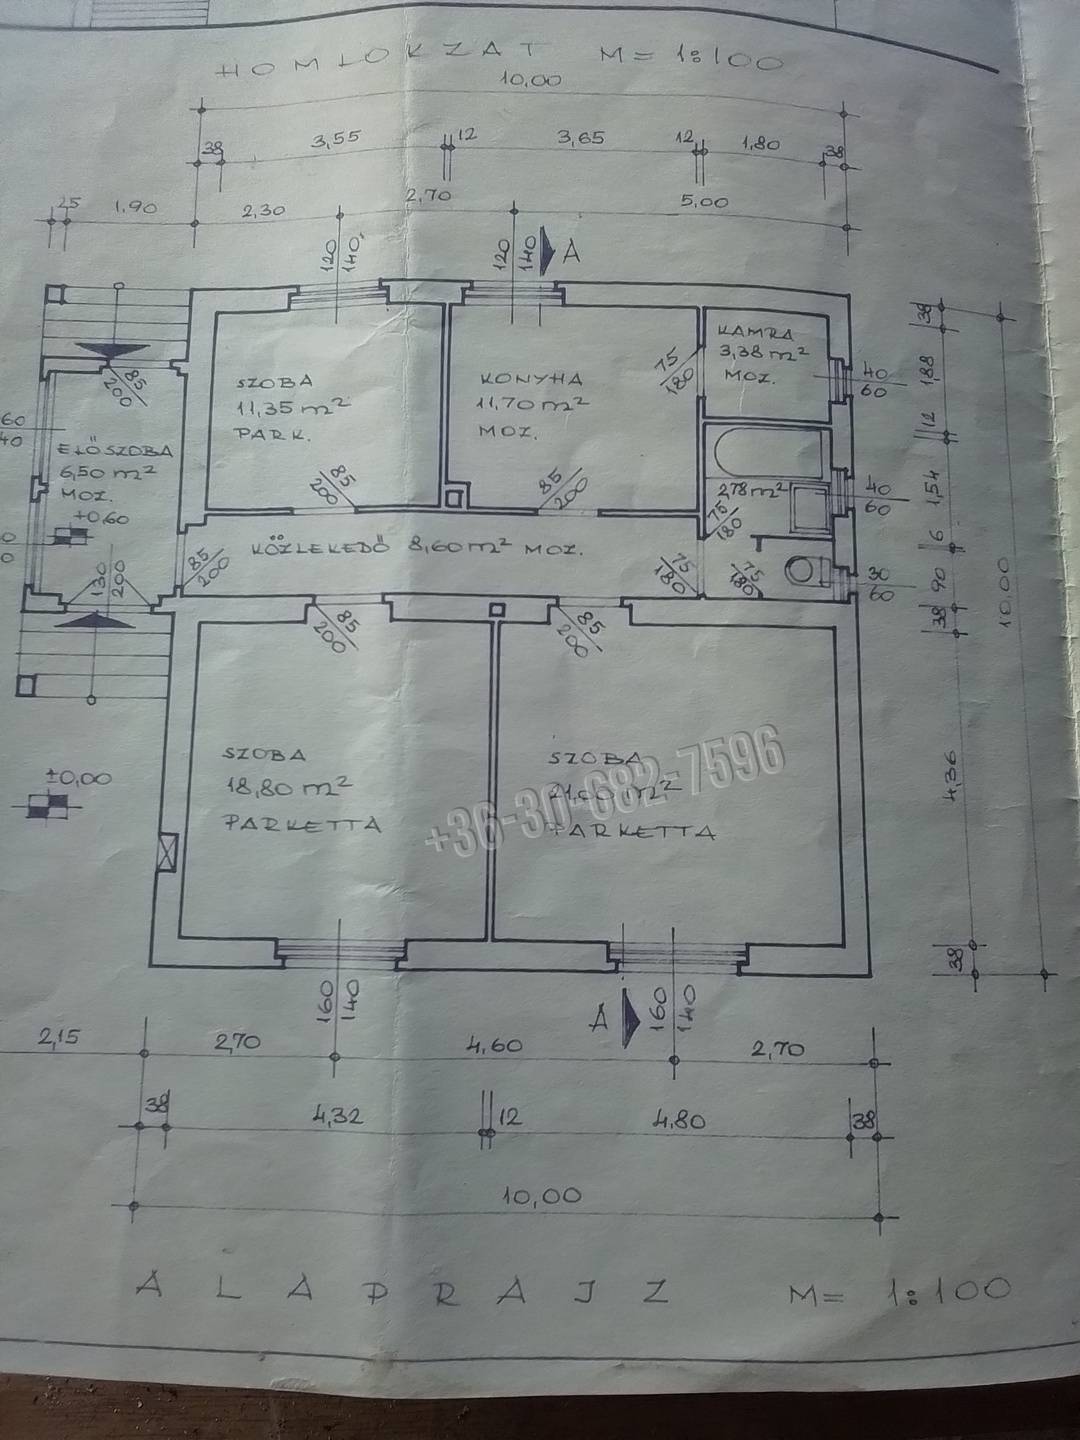 HOMLOKZAT M= 1:100
10,00
38 3,55 12 3,65 12 1,80 38
25 1,90 2,30 2,70 5,00
120
140
120
140
A
SZOBA
11,35 m²
PARK.
KONYHA
11,70 m²
MOZ.
KAMRA
3,38 m²
MOZ.
75
180
40
60
85
200
60
40
ELŐSZOBA
6,50 m²
MOZ.
+0,60
85
200
85
200
2,78 m²
40
60
75
180
KÖZLEKEDŐ 8,60 m² MOZ.
85
200
130
200
75
180
75
180
30
60
85
200
85
200
38
1,88
12
1,54
6
90
38
4,36
38
10,00
±0,00
SZOBA
18,80 m²
PARKETTA
SZOBA
m²
PARKETTA
+36-30-682-7596
160
140
A
160
140
2,15 2,70 4,60 2,70
38 4,32 12 4,80 38
10,00
ALAPRAJZ M= 1:100